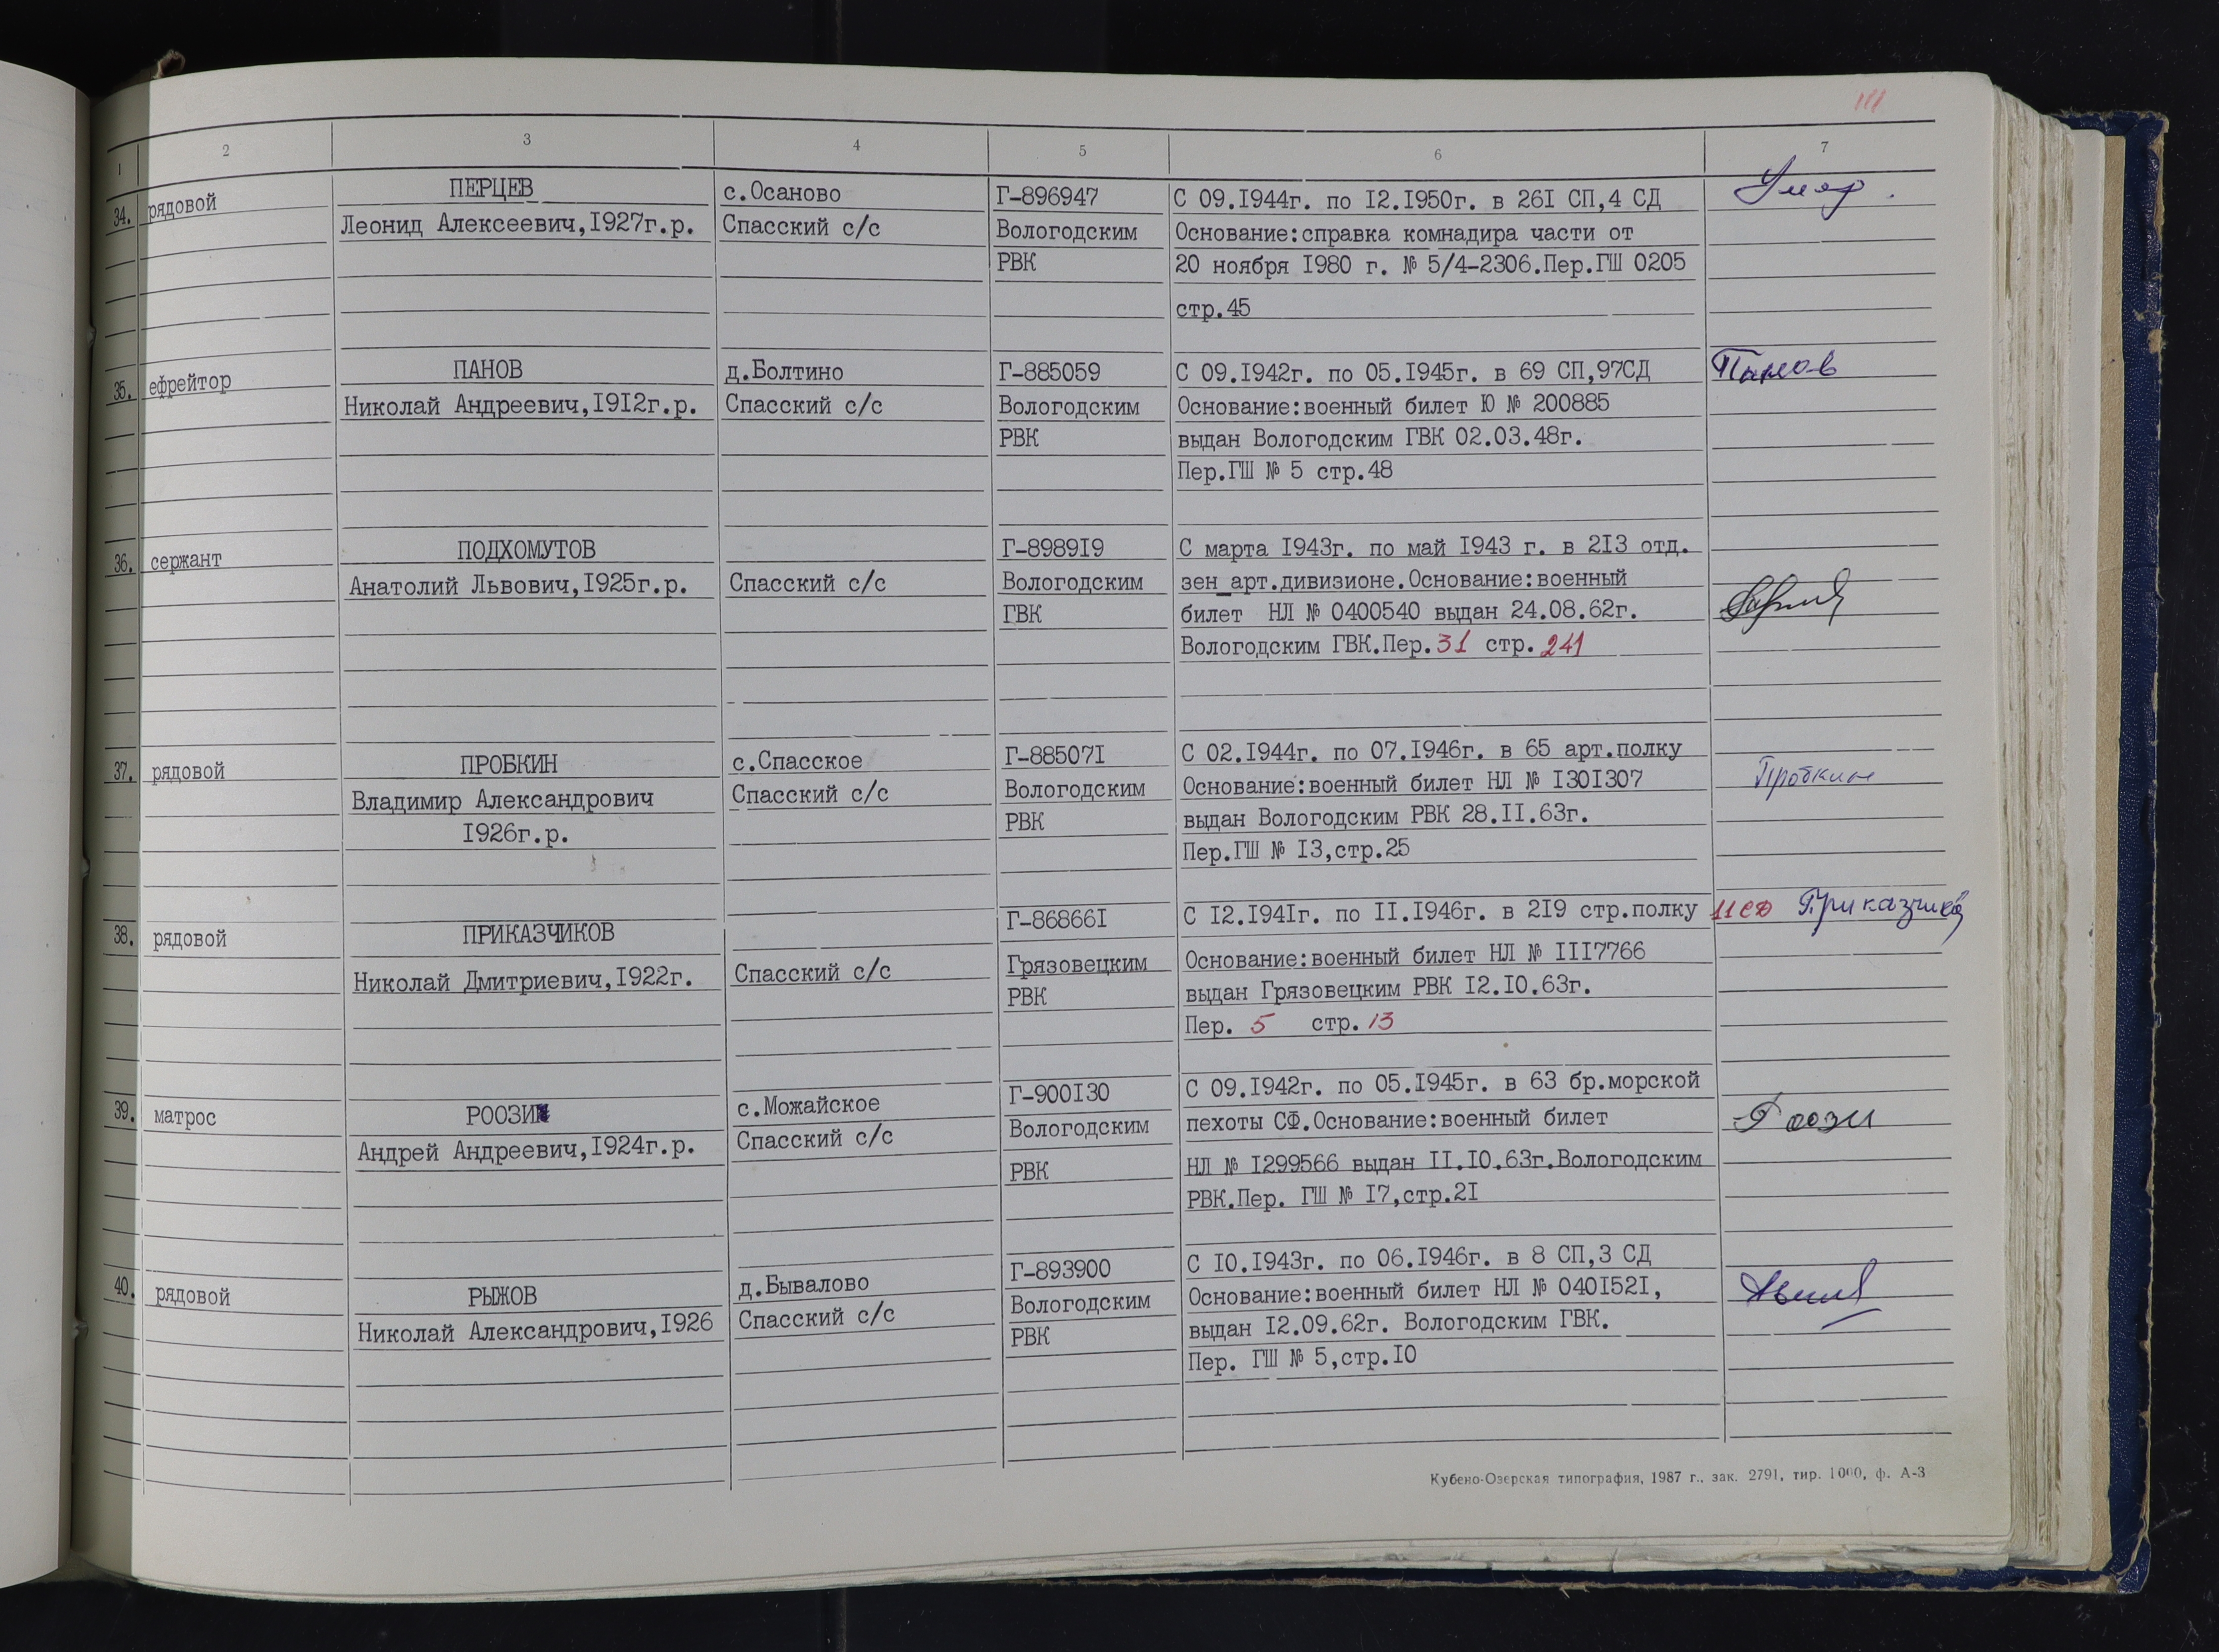 111
1 2 3 4 5 6 7
34. рядовой ПЕРЦЕВ с.Осаново Г-896947 С 09.I944г. по I2.I950г. в 26I СП,4 СД Умер.
Леонид Алексеевич,I927г.р. Спасский с/с Вологодским Основание:справка комнадира части от
РВК 20 ноября I980 г. № 5/4-2306.Пер.ГШ 0205
стр.45
35. ефрейтор ПАНОВ д.Болтино Г-885059 С 09.I942г. по 05.I945г. в 69 СП,97СД Панов
Николай Андреевич,I9I2г.р. Спасский с/с Вологодским Основание:военный билет Ю № 200885
РВК выдан Вологодским ГВК 02.03.48г.
Пер.ГШ № 5 стр.48
36. сержант ПОДХОМУТОВ Г-8989I9 С марта I943г. по май I943 г. в 2I3 отд.
Анатолий Львович,I925г.р. Спасский с/с Вологодским зен_арт.дивизионе.Основание:военный
ГВК билет НЛ № 0400540 выдан 24.08.62г.
Вологодским ГВК.Пер.31 стр.241
37. рядовой ПРОБКИН с.Спасское Г-88507I С 02.I944г. по 07.I946г. в 65 арт.полку Пробкин
Владимир Александрович Спасский с/с Вологодским Основание:военный билет НЛ № I30I307
I926г.р. РВК выдан Вологодским РВК 28.II.63г.
Пер.ГШ № I3,стр.25
38. рядовой ПРИКАЗЧИКОВ Г-86866I С I2.I94Iг. по II.I946г. в 2I9 стр.полку 11 СД Приказчиков
Николай Дмитриевич,I922г. Спасский с/с Грязовецким Основание:военный билет НЛ № III7766
РВК выдан Грязовецким РВК I2.I0.63г.
Пер. 5 стр. 13
39. матрос РООЗИ с.Можайское Г-900I30 С 09.I942г. по 05.I945г. в 63 бр.морской Роози
Андрей Андреевич,I924г.р. Спасский с/с Вологодским пехоты СФ.Основание:военный билет
РВК НЛ № I299566 выдан II.I0.63г.Вологодским
РВК.Пер. ГШ № I7,стр.2I
40. рядовой РЫЖОВ д.Бывалово Г-893900 С I0.I943г. по 06.I946г. в 8 СП,3 СД
Николай Александрович,I926 Спасский с/с Вологодским Основание:военный билет НЛ № 040I52I,
РВК выдан I2.09.62г. Вологодским ГВК.
Пер. ГШ № 5,стр.I0
Кубено-Озерская типография, 1987 г., зак. 2791, тир. 1000, ф. А-3